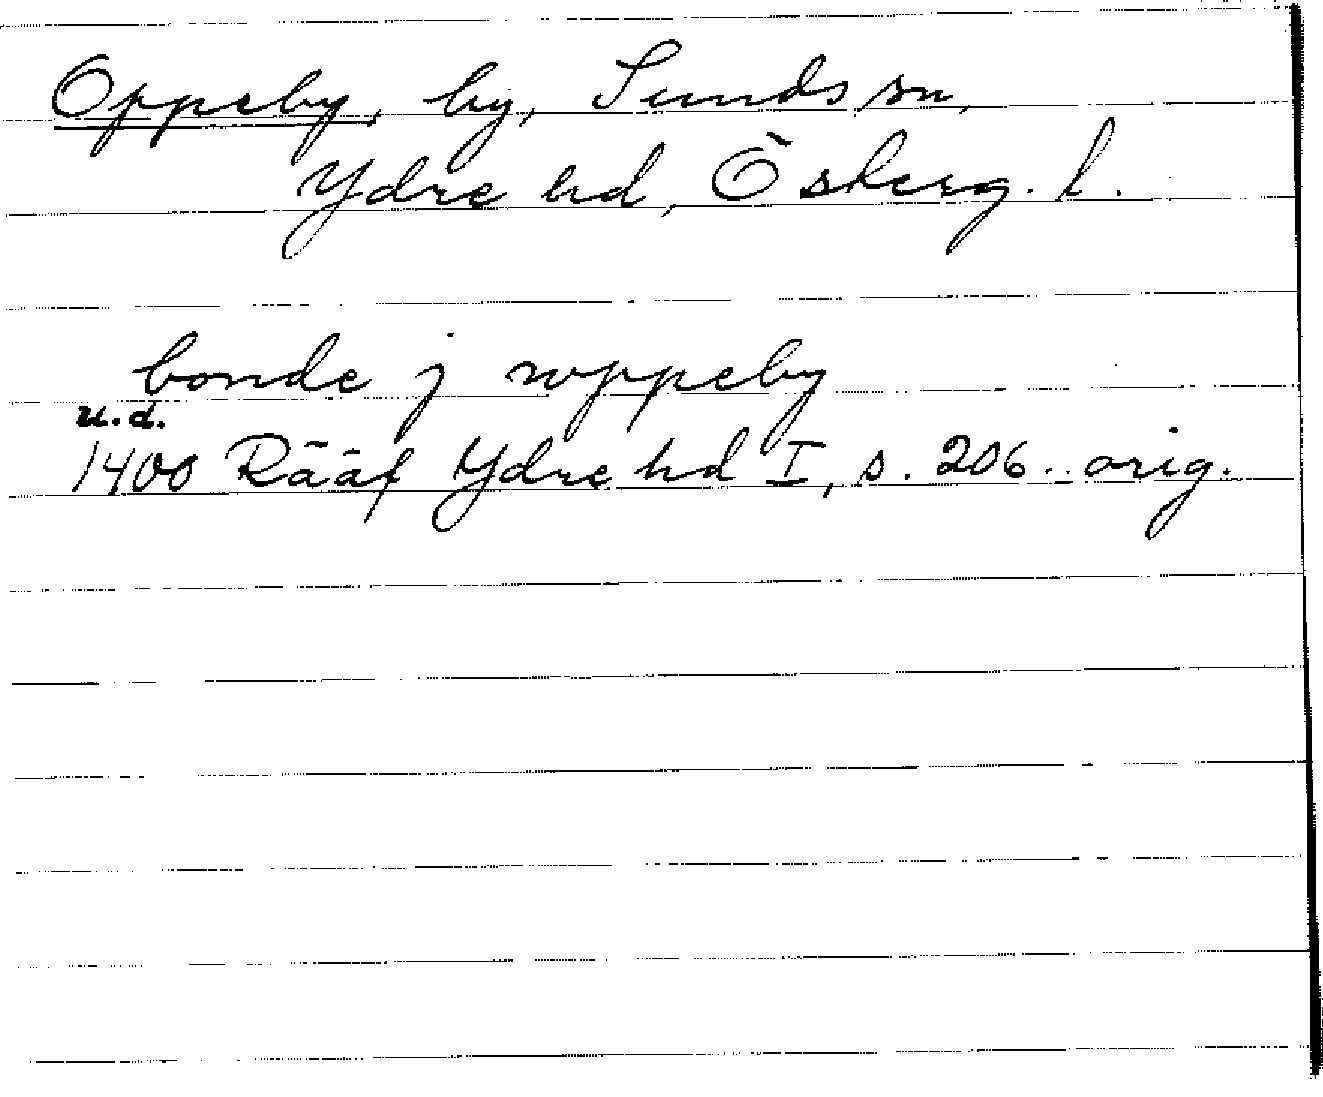 Oppeby, by, Sunds sn,
Ydre hd, Österg. l.
bonde j wppeby
u.d.
1400 Rääf Ydre hd I, s. 206. orig.